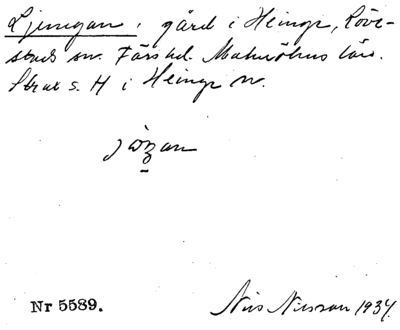 Ljungan, gård i Heinge, Löve-
stads sn. Färs hd. Malmöhus län.
Strax s. H i Heinge N.
Nr 5589.
Nils Nilsson 1934.